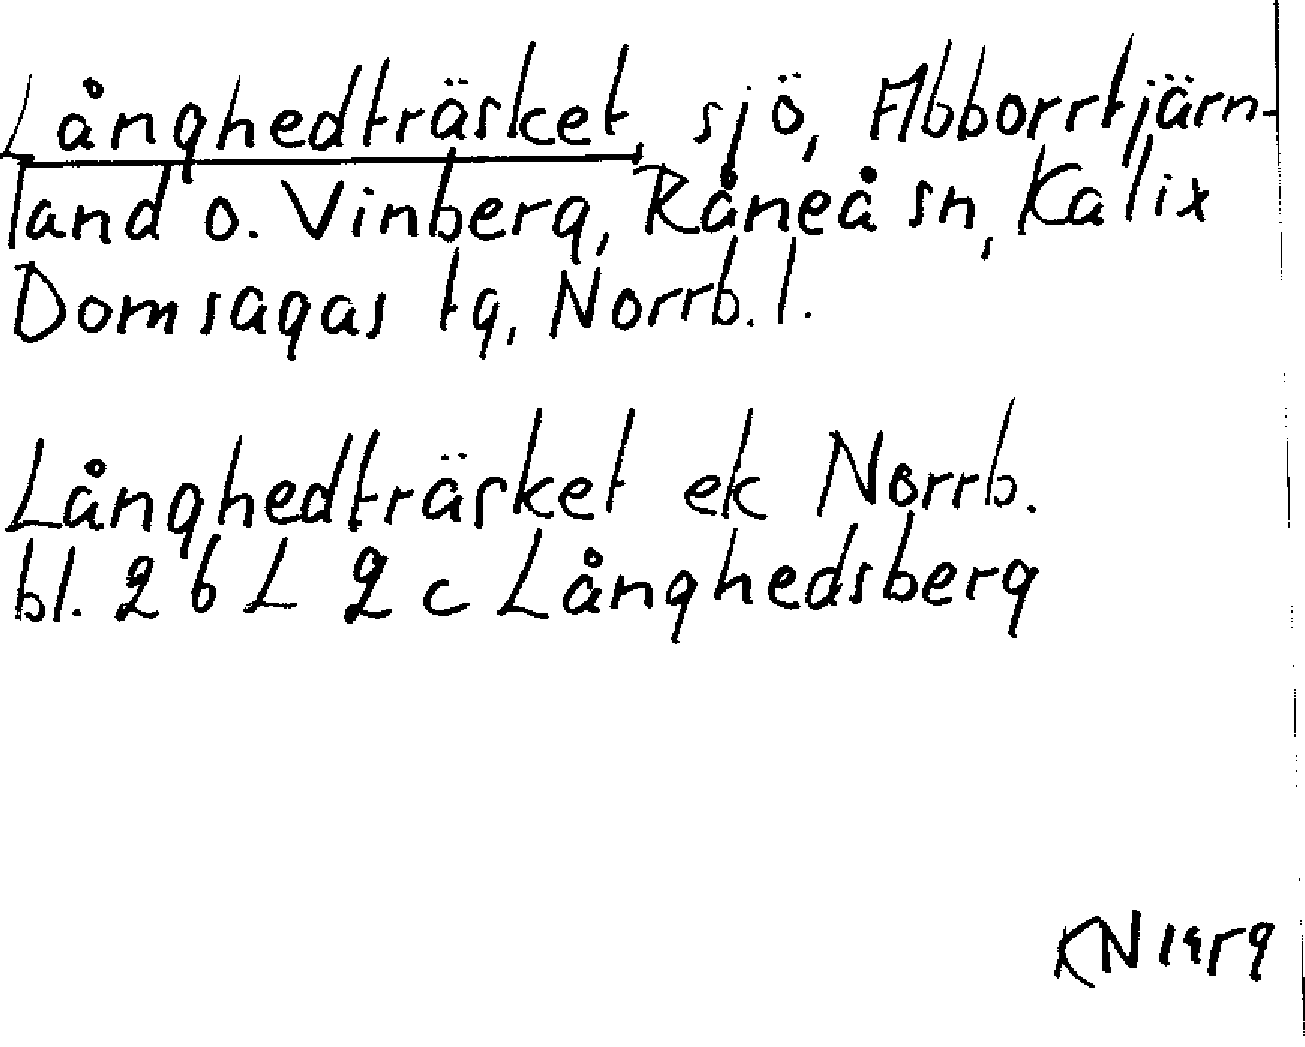 Långhedträsket, sjö, Abborrtjärn-
land o. Vinberg, Råneå sn, Kalix
Domsagas tg, Norrb. l.
Långhedträsket ek Norrb.
bl. 26 L 2 c Långhedsberg
KN 1959